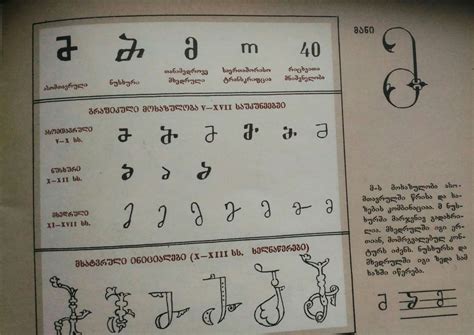 Ⴋ ⴋ მ m 40
ასომთავრული ნუსხური თანამედროვე მხედრული საერთაშორისო ტრანსკრიფცია რიცხვითი მნიშვნელობა
გრაფიკული მოხაზულობა V–XVII საუკუნეებში
ასომთავრული
V–X სს.
ნუსხური
X–XII სს.
მხედრული
XI–XVII სს.
მხატვრული ინიციალები (X–XIII სს. ხელნაწერები)
მანი
მ-ს მოხაზულობა ასო-
მთავრულში წრისა და ხა-
ზების კომბინაციაა. მ ნუს-
ხურში მარჯვნივ გადახრი-
ლია. მხედრულში იგი ერ-
თიან, მომრგვალებულ კონ-
ტურს იძენს. ნუსხურსა და
მხედრულში იგი ზედა სამ
ხაზში იწერება.